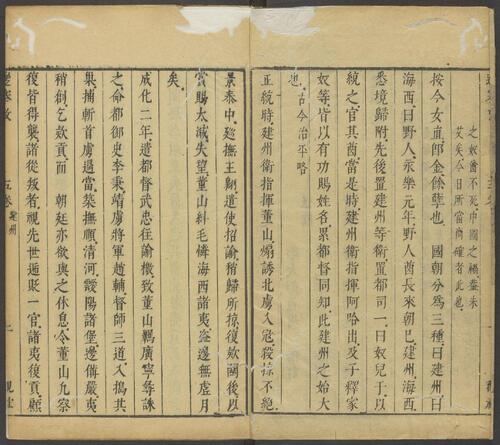 之奴酋不死中國之禍葢未
艾矣今日所當商確者此也
按今女直卽金餘孽也　國朝分爲三種曰建州曰
海西曰野人永樂元年野人酋長來朝已建州海西
悉境歸附先後置建州等衛置都司一曰奴兒干以
統之官其酋當是時建州衛指揮阿哈出及子釋家
奴等皆以有功賜姓名累都督同知此建州之始大
也古今治平略
正統時建州衛指揮董山煽誘北虜入寇殺掠不絕
景泰中廵撫王翺遣使招諭稍歸所掠復欸國後以
賞賜太減失望董山糾毛憐海西諸夷盜邊無虗月
矣
成化二年遣都督武忠往諭檄致董山羈廣寧尋誅
之命都御史李秉靖虜將軍趙輔督師三道入搗其
巢捕斬首虜過當築撫順清河靉陽諸堡邊備嚴夷
稍創乞欸貢而　朝廷亦欲與之休息令董山九察
復皆得襲諸從叛者視先世遞貶一官諸夷復貢顧
建州